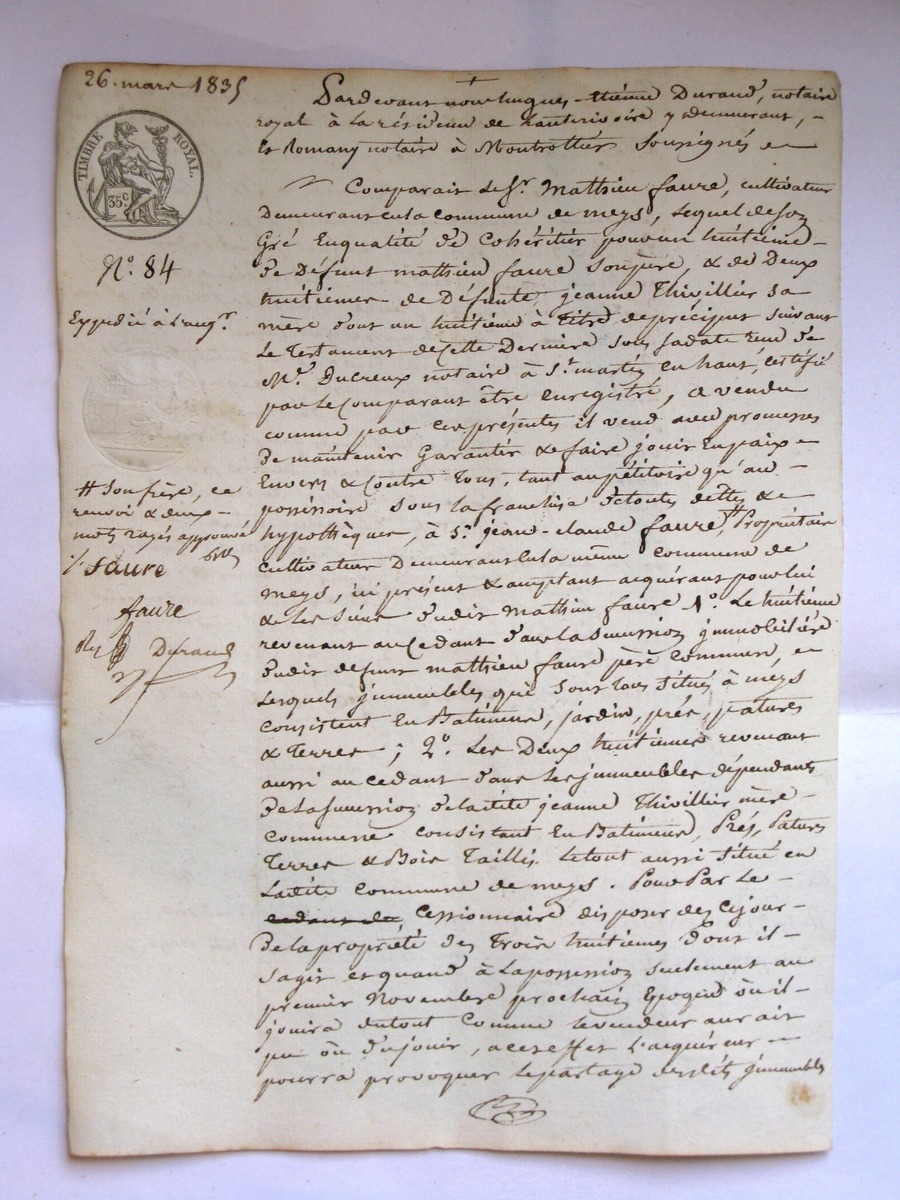 26. mars 1835
TIMBRE ROYAL.
35 c
N°. 84
Expedié à l'acqr.
# son frère, ce
renvoi & deux
mots rayés approuvé
faure
faure
Durand
Pardevant nous hugues-étienne Durand, notaire
royal à la résidence de Lanterivoire y demeurant,
et Romany notaire à Montrottier soussignés
Comparait le Sr. Mathieu faure, cultivateur
demeurant en la commune de meys, lequel de son
Gré En qualité de Cohéritier pour un huitieme
de Défunt mathieu faure son père, & de Deux
huitiemes de Défunte jeanne Thivillier sa
mère dont un huitieme à titre de préciput suivant
le testament de Cette Dernière sous sa date reçu de
Me. Ducreux notaire à St. martin en haut, certifié
par le Comparant être Enregistré, a vendu
comme par ces présentes il vend avec promesses
de maintenir Garantir & faire jouir En paix
Envers & Contre Tous, tant au pétitoire qu'au
possessoire sous la franchise de toutes dettes &
hypothèques, à Sr. jean-claude faure, # Propriétaire
Cultivateur Demeurant en la même commune de
meys, ici présent & acceptant acquérant pour lui
& les siens dudit Mathieu faure 1°. Le huitième
revenant au Cédant dans la succession jmmobilière
dudit defunt mathieu faure père commun,
lesquels jmmeubles qui sont tous situés à meys
consistent En Batimens, jardin, prés, patures
& terres ; 2°. Les Deux huitiemes revenant
aussi au cedant dans les jmmeubles dépendants
De la succession de la dite jeanne Thivillier mère
commune consistant En Batimens, Prés, Patures
Terres & Bois Taillis, le tout aussi situé en
Ladite Commune de meys. Pour Par Le
cedant de Cessionnaire disposer dez ce jour
De la propriété des trois huitièmes dont il
s'agit et quand à la possession seulement au
premier Novembre prochain Epoque où il
jouira du tout comme le vendeur aurait
pu ou dû jouir, a cet effet L'acquéreur
pourra provoquer le partage desdits jmmeubles